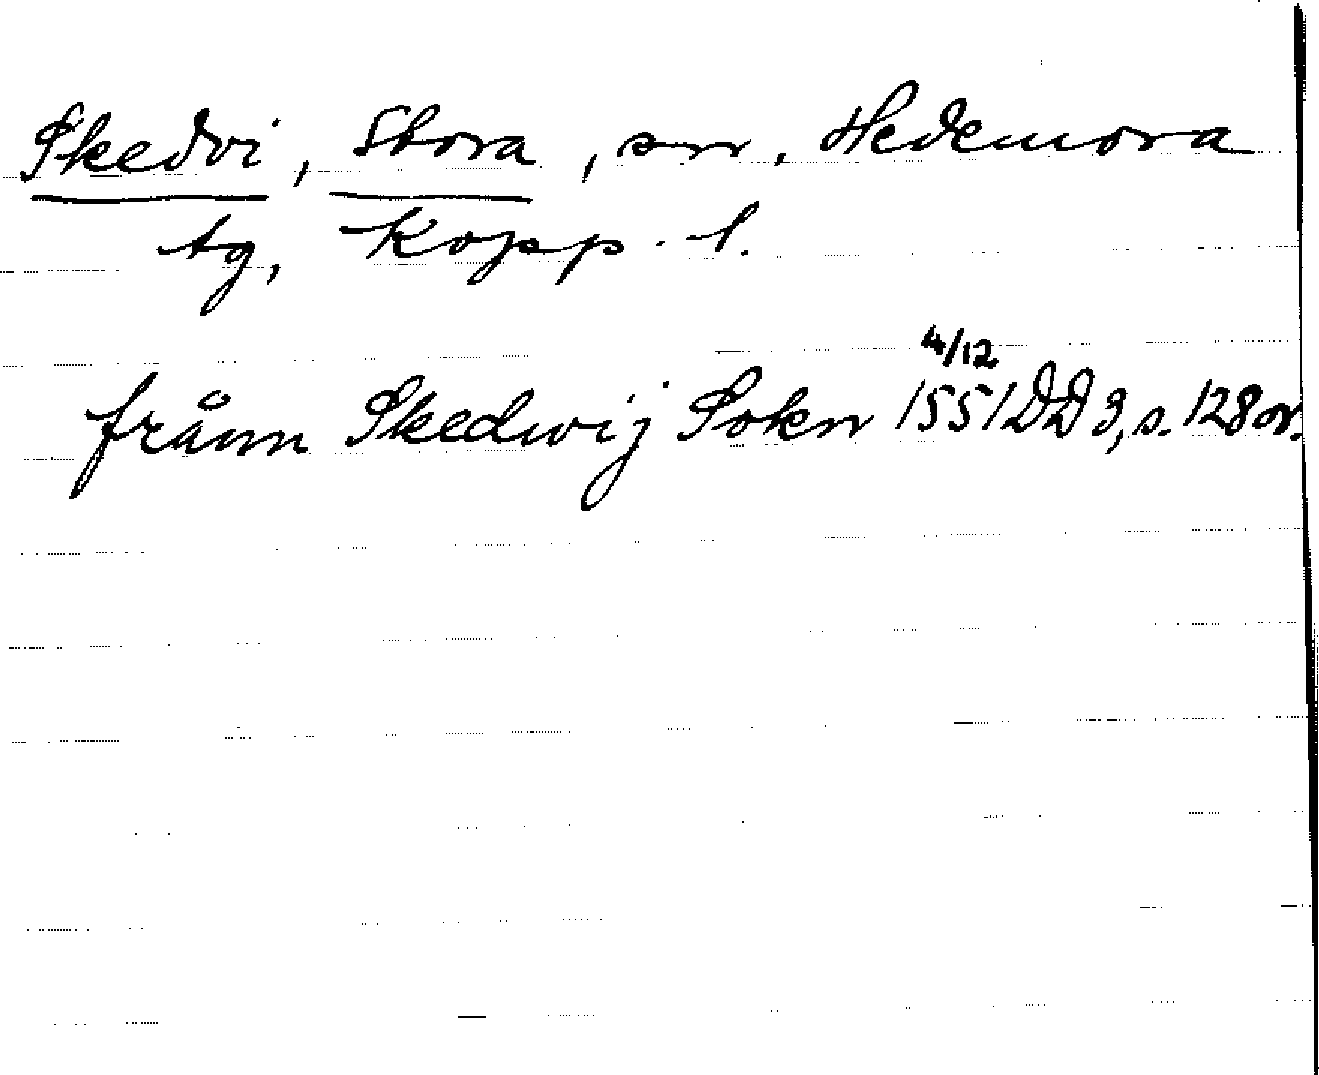 Skedvi, Stora, sn, Hedemora
tg, Kopp. l.
frånn Skedwij Sokn 4/12 1551 DD 3, s. 128 or.